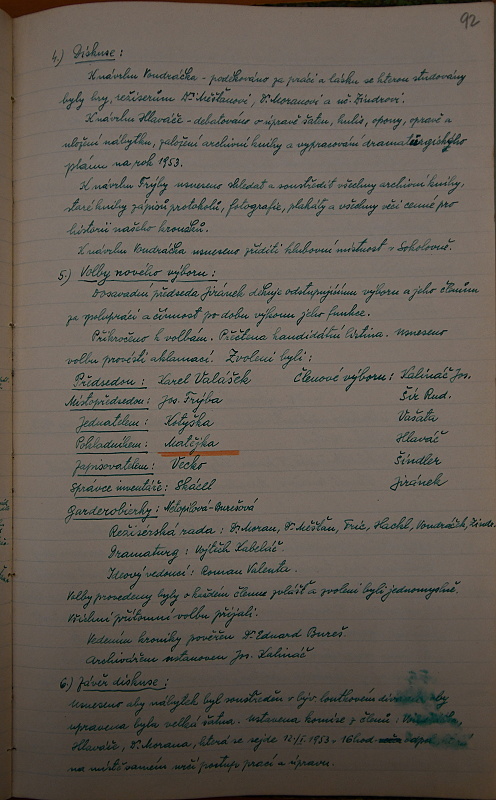 92
4.) Diskuse:
K návrhu Vondráčka - poděkováno za práci a lásku se kterou studovány
byly hry, režisérům Dr Měšťanovi, Dr. Moranovi a uč. Šindrovi.
K návrhu Hlaváče - debatováno o úpravě šaten, kulis, opony, opravě a
uložení nábytku, založení archivní knihy a vypracování dramaturgického
plánu na rok 1953.
K návrhu Trýby usneseno shledat a soustředit všechny archivní knihy,
staré knihy zápisů protokolů, fotografie, plakáty a všechny věci cenné pro
historii našeho kroužku.
K návrhu Vondráčka usneseno zříditi klubovní místnost v Sokolovně.
5.) Volby nového výboru:
Dosavadní předseda Jiránek děkuje odstupujícímu výboru a jeho členům
za spolupráci a činnost po dobu výkonu jeho funkce.
Přikročeno k volbám. Přečtena kandidátní listina. Usneseno
volbu provésti aklamací. Zvoleni byli:
Předsedou: Karel Valášek Členové výboru: Kalináč Jos.
Místopředsedou: Jos. Trýba Šír Rud.
Jednatelem: Kotyška Vašata
Pokladníkem: Matějka Hlaváč
Zapisovatelem: Vecko Šindler
Správce inventáře: Skácel Jiránek
Garderobierky: Netopilová - Burešová
Režisérská rada: Dr. Moran, Dr. Měšťan, Fric, Hachl, Vondráček,
Dramaturg: Vojtěch Kabeláč.
Ideový vedoucí: Roman Valenta.
Volby provedeny byly o každém členu zvlášť a zvoleni byli jednomyslně.
Všichni přítomní volbu přijali.
Vedením kroniky pověřen Dr Eduard Bureš.
Archivářem ustanoven Jos. Kalináč
6.) Závěr diskuse:
Usneseno aby nábytek byl soustředěn v býv. loutkovém aby
upravena byla velká šatna. Ustavena komise z členů:
Hlaváče, Dr. Morana, která se sejde 12/I. 1953 v 16 hod.
na místě samém určí postup prací a úpravu.